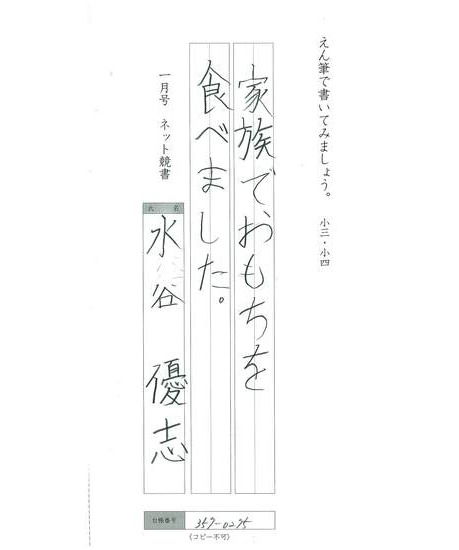 えん筆で書いてみましょう。 小三・小四
家族でおもちを
食べました。
一月号 ネット競書
氏名
水谷 優志
台帳番号 357-0295
(コピー不可)